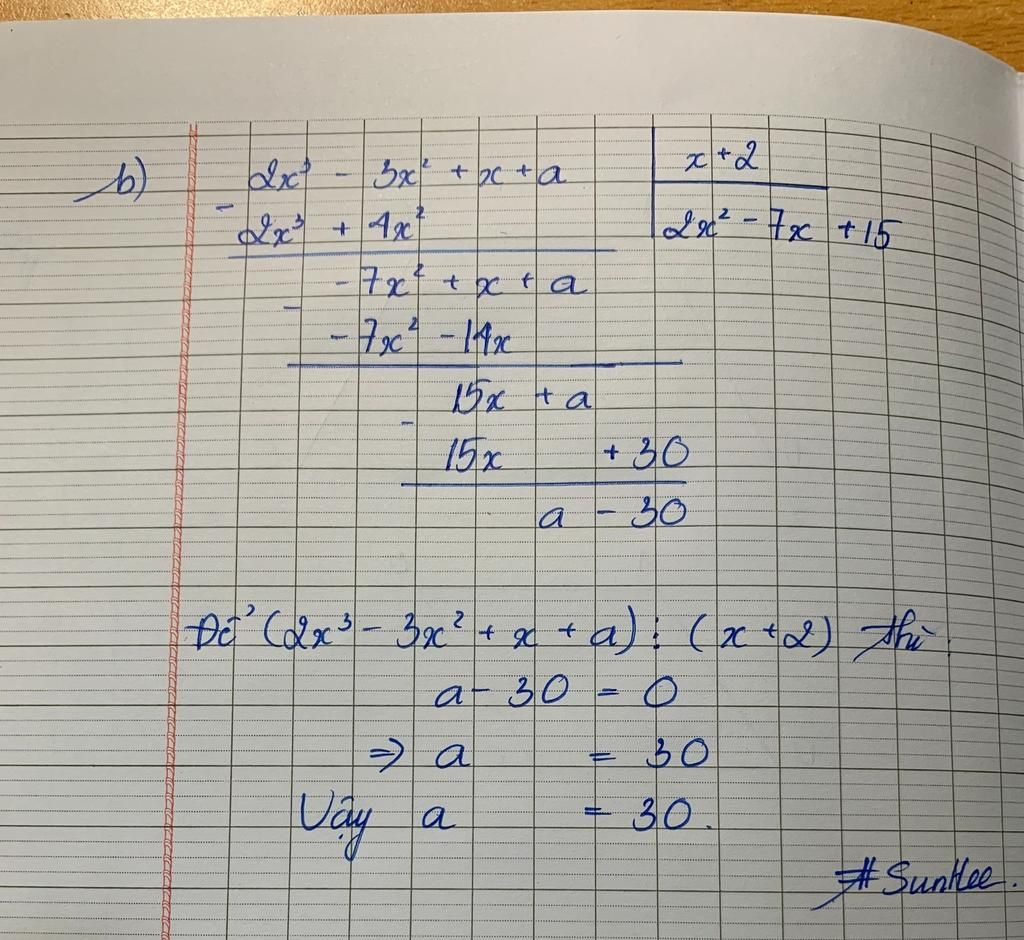 b) 2x³ - 3x² + x + a | x + 2
- 2x³ + 4x² | 2x² - 7x + 15
- 7x² + x + a
- - 7x² - 14x
15x + a
- 15x + 30
a - 30
Để (2x³ - 3x² + x + a) ⋮ (x + 2) thì
a - 30 = 0
⇒ a = 30
Vậy a = 30.
#SunHee.